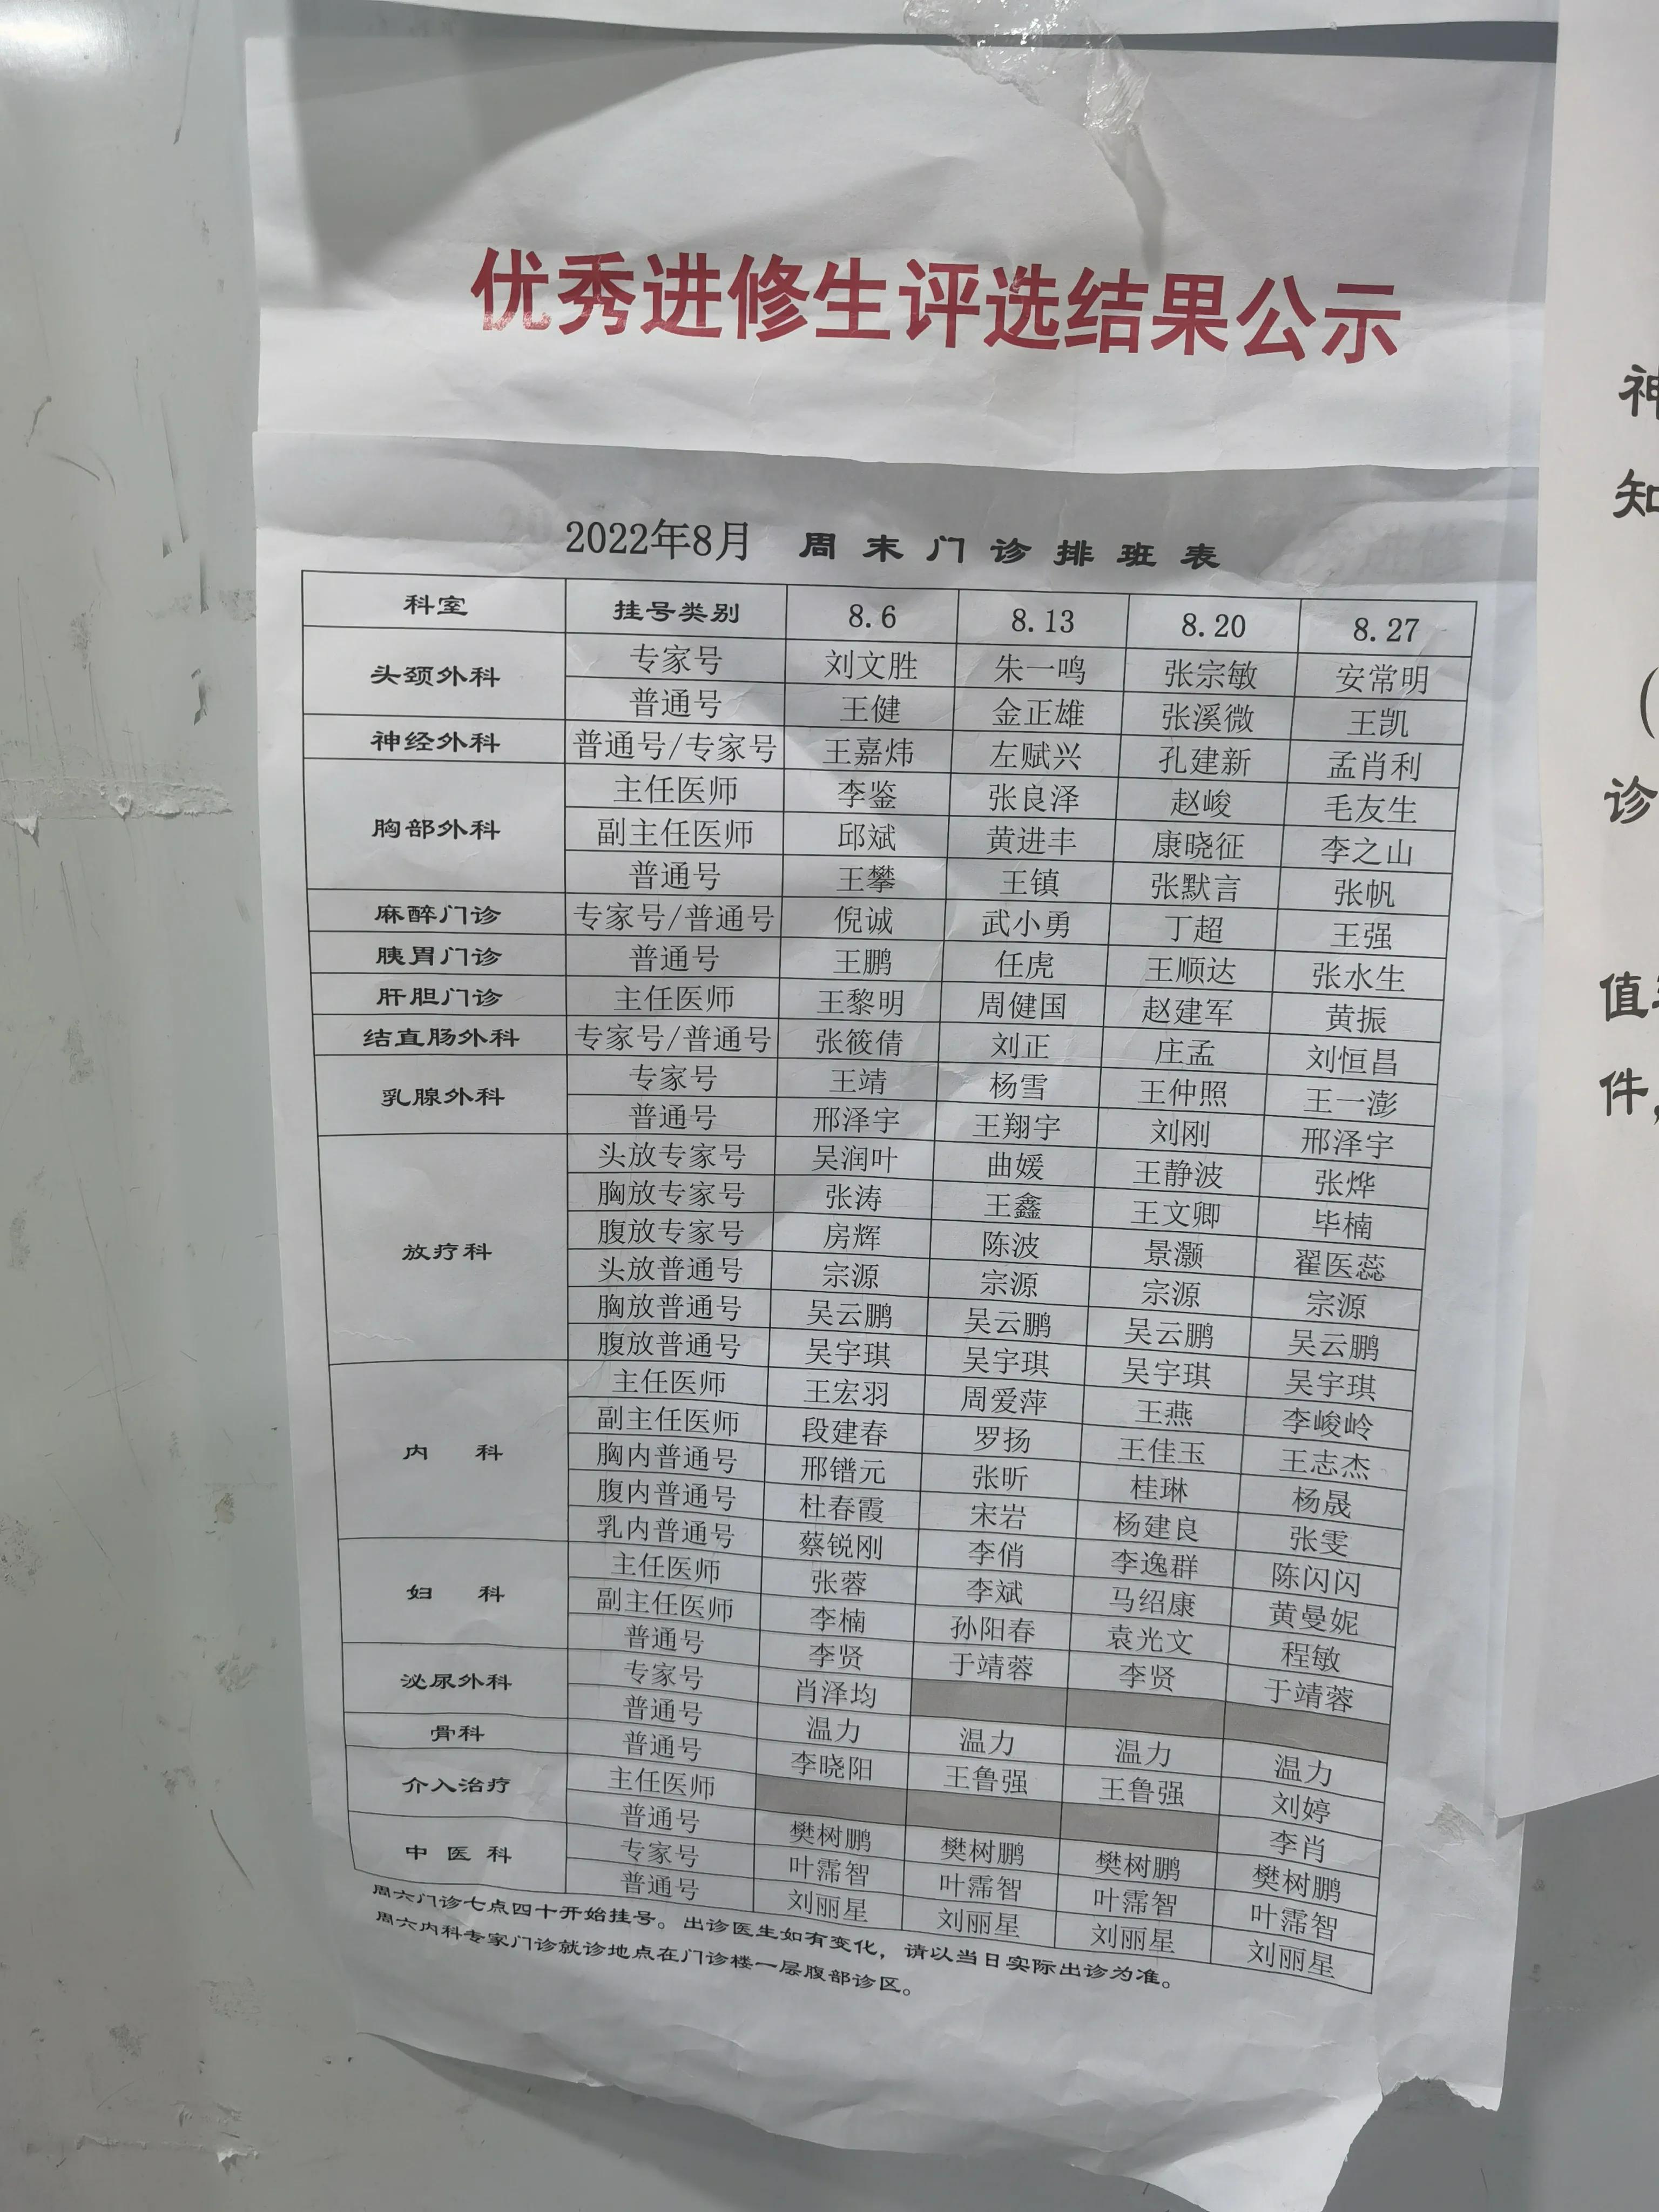 优秀进修生评选结果公示
2022年8月 周末门诊排班表
科室 挂号类别 8.6 8.13 8.20 8.27
头颈外科 专家号 刘文胜 朱一鸣 张宗敏 安常明
普通号 王健 金正雄 张溪微 王凯
神经外科 普通号/专家号 王嘉炜 左赋兴 孔建新 孟肖利
胸部外科 主任医师 李鉴 张良泽 赵峻 毛友生
副主任医师 邱斌 黄进丰 康晓征 李之山
普通号 王攀 王镇 张默言 张帆
麻醉门诊 专家号/普通号 倪诚 武小勇 丁超 王强
胰胃门诊 普通号 王鹏 任虎 王顺达 张水生
肝胆门诊 主任医师 王黎明 周健国 赵建军 黄振
结直肠外科 专家号/普通号 张筱倩 刘正 庄孟 刘恒昌
乳腺外科 专家号 王靖 杨雪 王仲照 王一澎
普通号 邢泽宇 王翔宇 刘刚 邢泽宇
放疗科 头放专家号 吴润叶 曲媛 王静波 张烨
胸放专家号 张涛 王鑫 王文卿 毕楠
腹放专家号 房辉 陈波 景灏 翟医蕊
头放普通号 宗源 宗源 宗源 宗源
胸放普通号 吴云鹏 吴云鹏 吴云鹏 吴云鹏
腹放普通号 吴宇琪 吴宇琪 吴宇琪 吴宇琪
内科 主任医师 王宏羽 周爱萍 王燕 李峻岭
副主任医师 段建春 罗扬 王佳玉 王志杰
胸内普通号 邢镨元 张昕 桂琳 杨晟
腹内普通号 杜春霞 宋岩 杨建良 张雯
乳内普通号 蔡锐刚 李俏 李逸群 陈闪闪
妇科 主任医师 张蓉 李斌 马绍康 黄曼妮
副主任医师 李楠 孙阳春 袁光文 程敏
普通号 李贤 于靖蓉 李贤 于靖蓉
泌尿外科 专家号 肖泽均
普通号 温力 温力 温力 温力
骨科 普通号 李晓阳 王鲁强 王鲁强 刘婷
介入治疗 主任医师 李肖
普通号 樊树鹏 樊树鹏 樊树鹏 樊树鹏
中医科 专家号 叶霈智 叶霈智 叶霈智 叶霈智
普通号 刘丽星 刘丽星 刘丽星 刘丽星
周六门诊七点四十开始挂号。出诊医生如有变化，请以当日实际出诊为准。
周六内科专家门诊就诊地点在门诊楼一层腹部诊区。
神
知
（
诊
值
件，